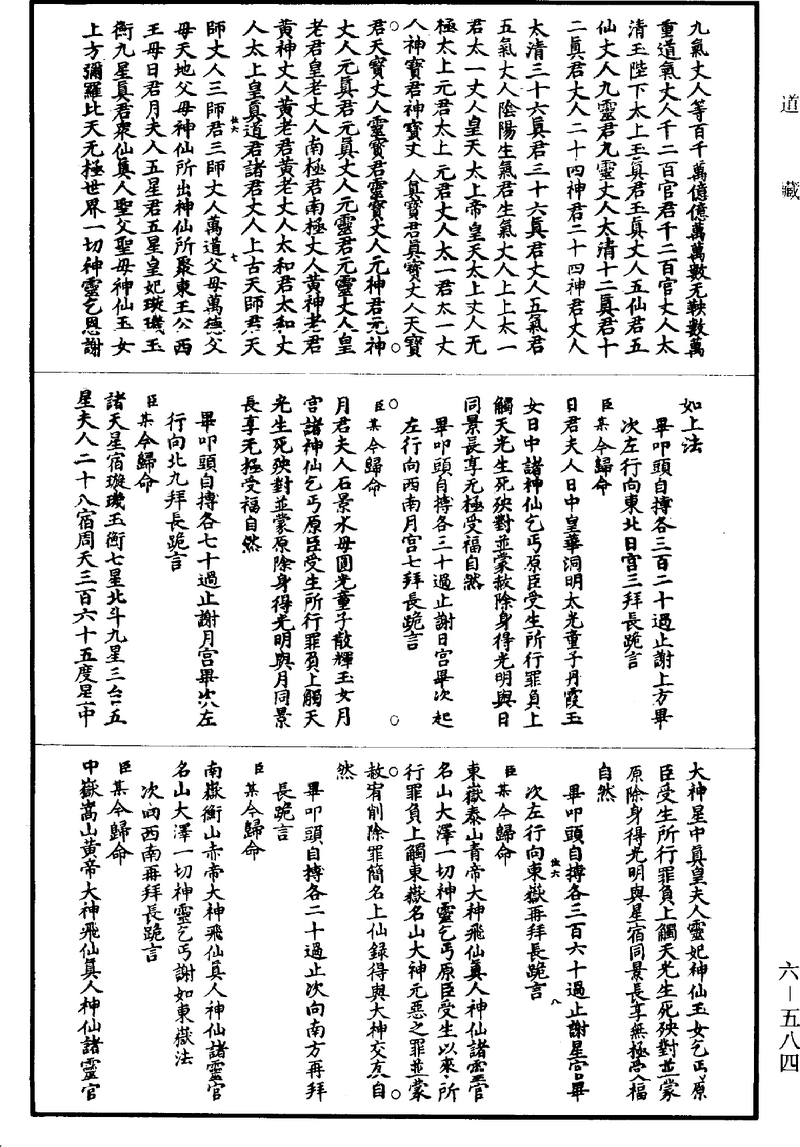 道藏
九氣丈人等百千萬億億萬萬數无鞅數萬
重道氣丈人千二百官君千二百官丈人太
清玉陛下太上玉眞君玉眞丈人五仙君五
仙丈人九靈君九靈丈人太清十二眞君十
二眞君丈人二十四神君二十四神君丈人
太清三十六眞君三十六眞君丈人五氣君
五氣丈人陰陽生氣君生氣丈人上上太一
君太一丈人皇天太上帝皇天太上丈人无
極太上元君太上元君丈人太一君太一丈
人神寶君神寶丈人眞寶君眞寶丈人天寶
君天寶丈人靈寶君靈寶丈人元神君元神
丈人元眞君元眞丈人元靈君元靈丈人皇
老君皇老丈人南極君南極丈人黃神老君
黃神丈人黃老君黃老丈人太和君太和丈
人太上皇眞道君諸君丈人上古天師君天
師丈人三師君三師丈人萬道父母萬德父
母天地父母神仙所出神仙所聚東王公西
王母日君月夫人五星君五星皇妃璇璣玉
衡九星眞君衆仙眞人聖父聖母神仙玉女
上方彌羅比天无極世界一切神靈乞恩謝
如上法
畢叩頭自搏各三百二十過止謝上方畢
次左行向東北日宮三拜長跪言
臣某今歸命
日君夫人日中皇華洞明太光童子丹霞玉
女日中諸神仙乞丐原臣受生所行罪負上
觸天光生死殃對並蒙赦除身得光明與日
同景長享无極受福自然
畢叩頭自搏各三十過止謝日宮畢次起
左行向西南月宮七拜長跪言
臣某今歸命
月君夫人石景水母圓光童子散輝玉女月
宮諸神仙乞丐原臣受生所行罪負上觸天
光生死殃對並蒙原除身得光明與月同景
長享无極受福自然
畢叩頭自搏各七十過止謝月宮畢次左
行向北九拜長跪言
臣某今歸命
諸天星宿璇璣玉衡七星北斗九星三台五
星夫人二十八宿周天三百六十五度星中
大神星中眞皇夫人靈妃神仙玉女乞丐原
臣受生所行罪負上觸天光生死殃對並蒙
原除身得光明與星宿同景長享無極受福
自然
畢叩頭自搏各三百六十過止謝星宮畢
次左行向東嶽再拜長跪言
臣某今歸命
東嶽泰山青帝大神飛仙眞人神仙諸靈官
名山大澤一切神靈乞丐原臣受生以來所
行罪負上觸東嶽名山大神元惡之罪並蒙
赦宥削除罪簡名上仙錄得與大神交友自
然
畢叩頭自搏各二十過止次向南方再拜
長跪言
臣某今歸命
南嶽衡山赤帝大神飛仙眞人神仙諸靈官
名山大澤一切神靈乞丐謝如東嶽法
次向西南再拜長跪言
臣某今歸命
中嶽嵩山黃帝大神飛仙眞人神仙諸靈官
六－五八四